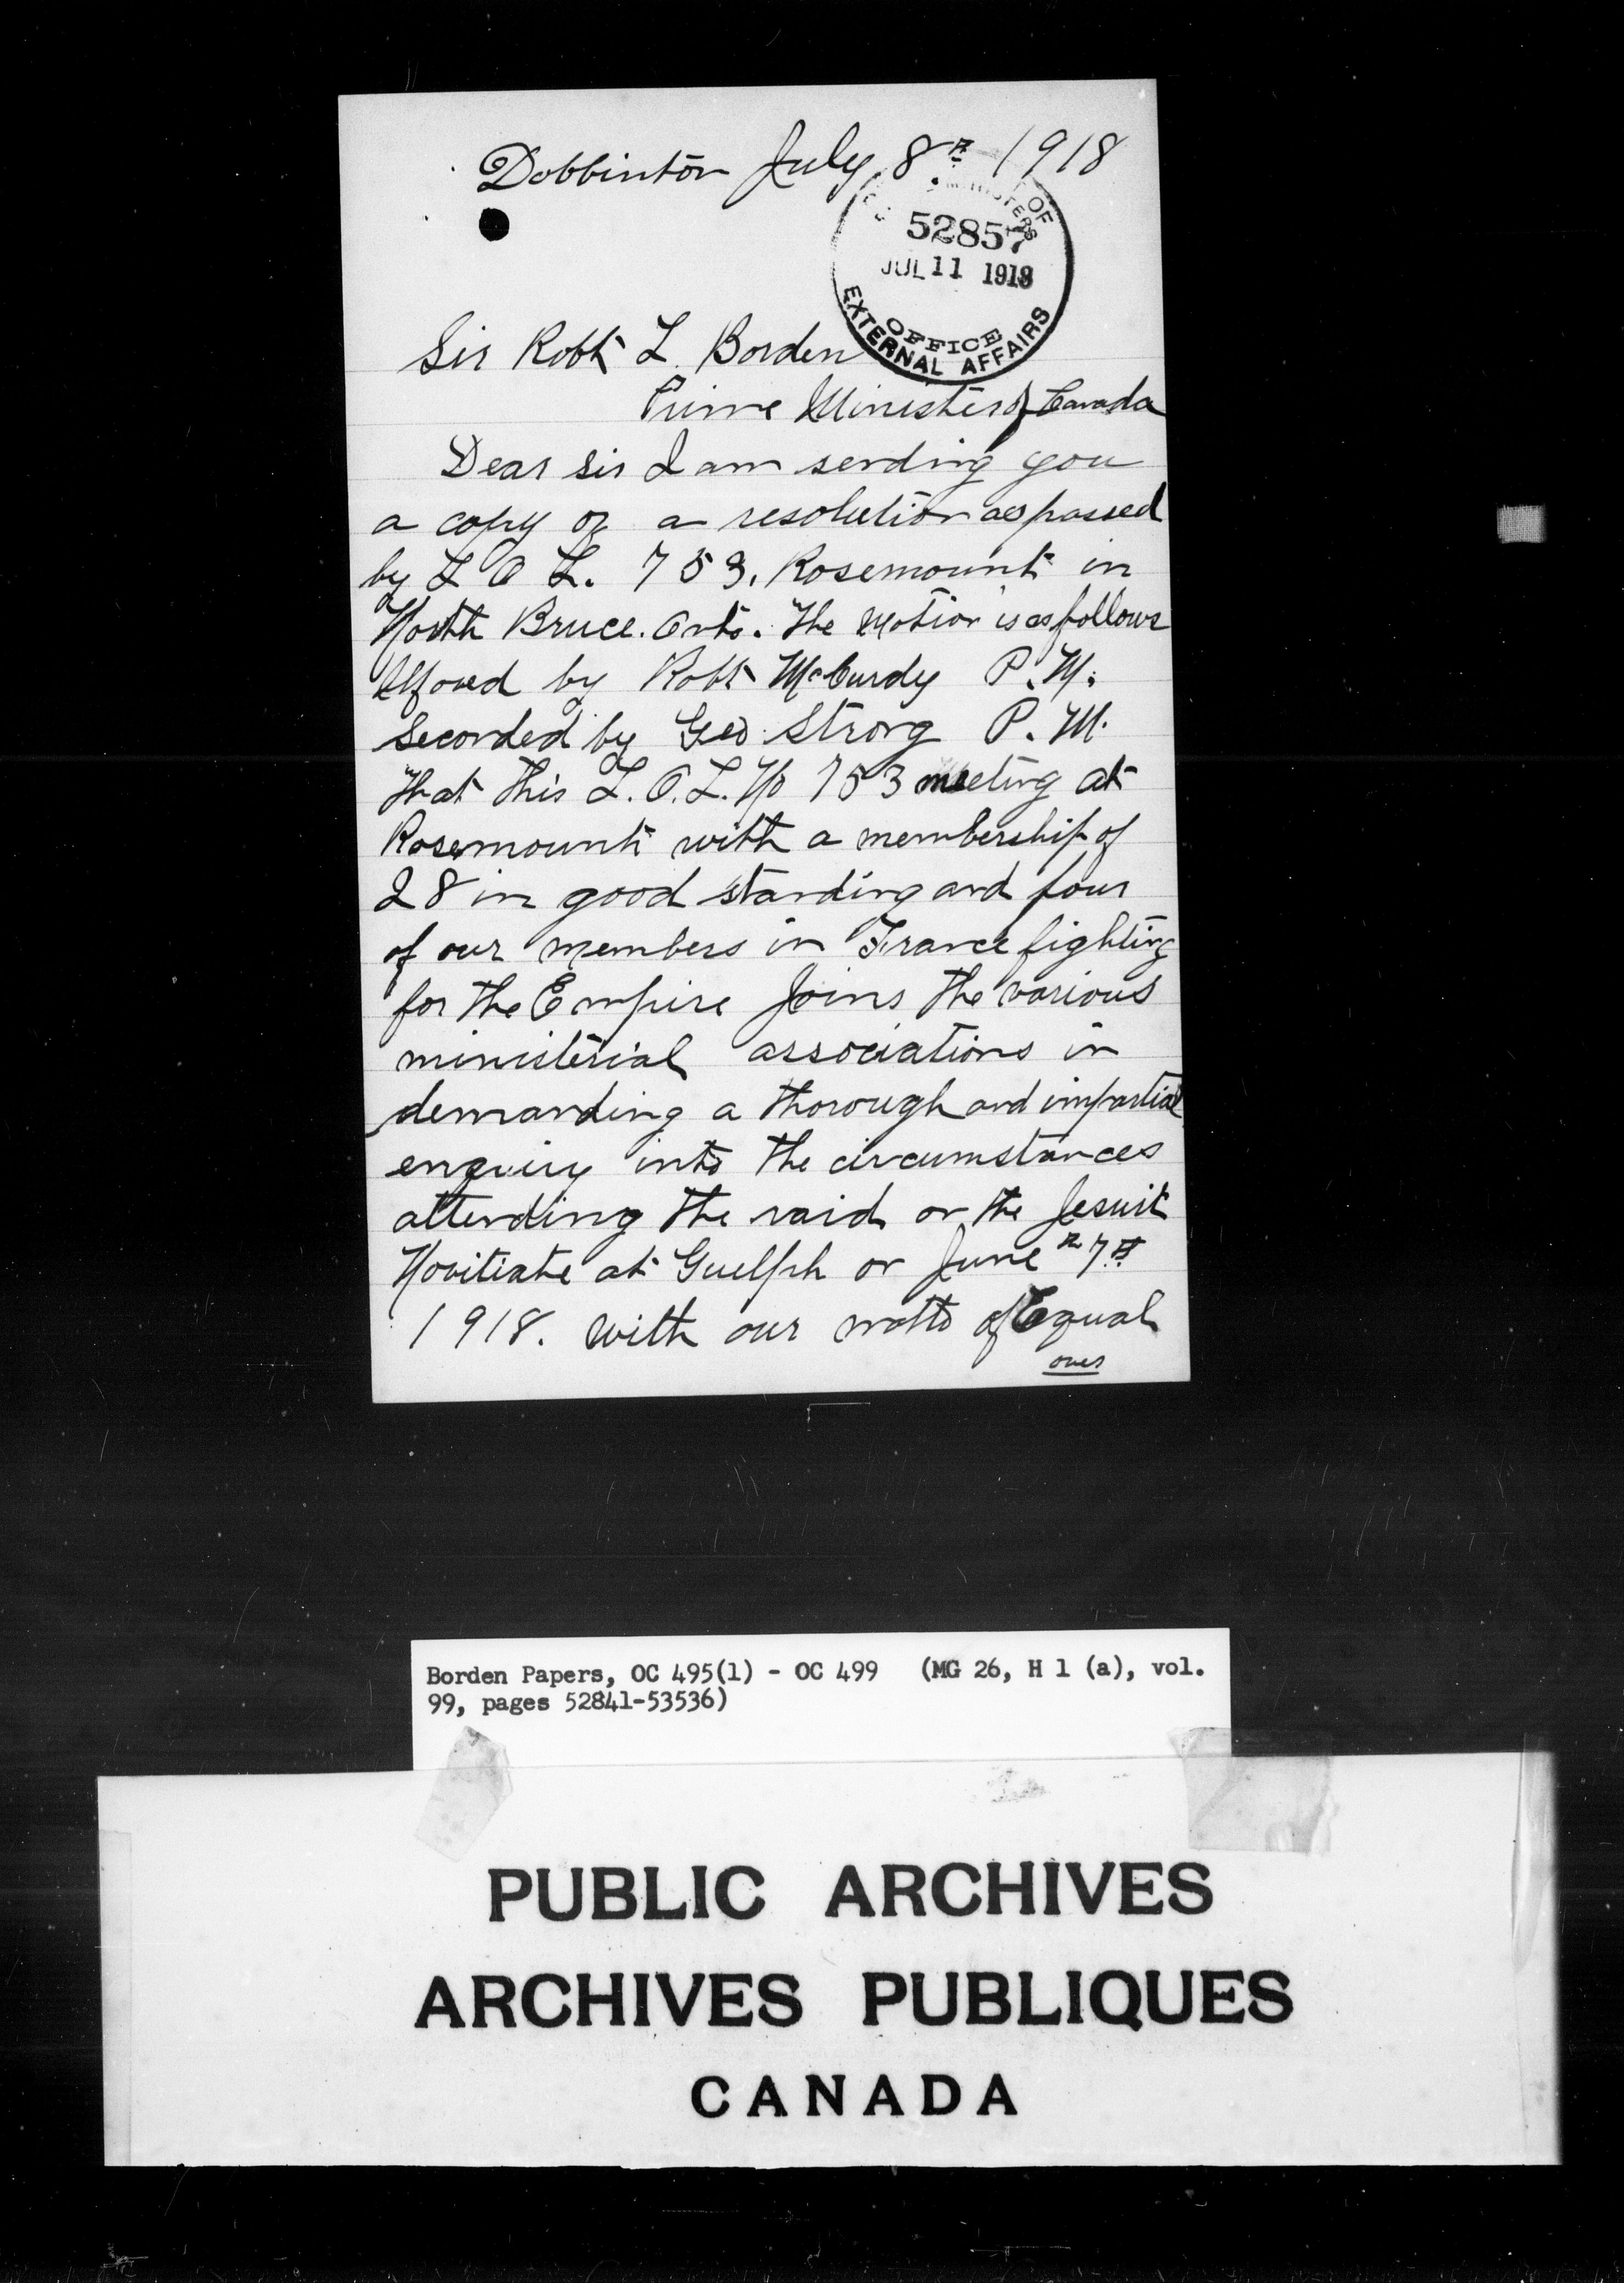 Dobbinton July 8th 1918
OF
52857
JUL 11 1918
OFFICE
EXTERNAL AFFAIRS
Sir Robt L. Borden
Prime Minister of Canada
Dear Sir I am sending you
a copy of a resolution as passed
by L O L. 753. Rosemount in
North Bruce. Onto. The Motion is as follows
Moved by Robt McCurdy P. M.
Seconded by Geo. Strong P. M.
That this L. O. L. No 753 meeting at
Rosemount with a membership of
28 in good standing and four
of our members in France fighting
for the Empire Joins the various
ministerial associations in
demanding a thorough and impartial
enquiry into the circumstances
attending the raid on the Jesuit
Novitiate at Guelph on June 7th
1918. with our motto of Equal
over
Borden Papers, OC 495(1) - OC 499 (MG 26, H 1 (a), vol.
99, pages 52841-53536)
PUBLIC ARCHIVES
ARCHIVES PUBLIQUES
CANADA